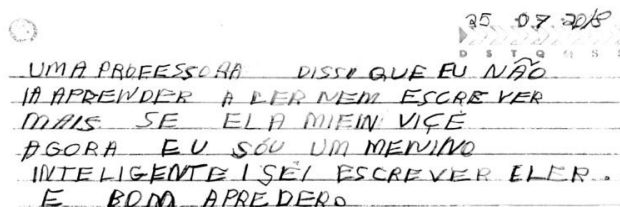 25 07 2018
D S T Q Q S S
UMA PROFESSORA DISSI QUE EU NÃO
IA APRENDER A LER NEM ESCREVER
MAIS SE ELA MIEIN VIÇE
AGORA EU SOU UM MENINO
INTELIGENTE I SEI ESCREVER ELER.
E BOM APREDERO